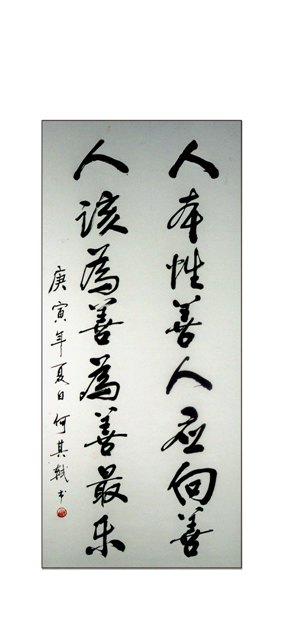 人本性善人应向善
人该為善為善最乐
庚寅年夏日何其轼书